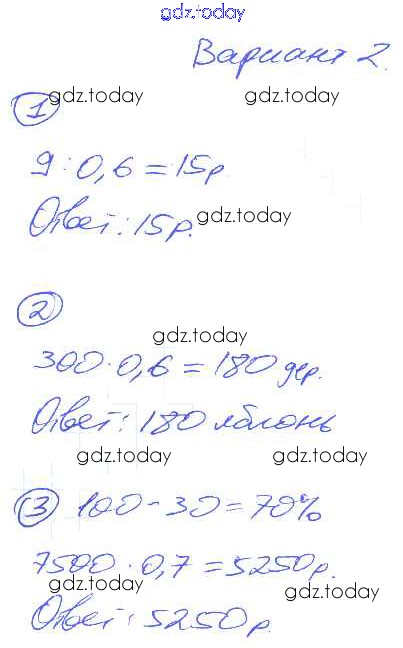 gdz.today
Вариант 2.
1 gdz.today gdz.today
9 : 0,6 = 15р.
Ответ: 15р. gdz.today
2
gdz.today
300 · 0,6 = 180 дер.
Ответ: 180 яблонь
gdz.today gdz.today
3 100 - 30 = 70%
7500 · 0,7 = 5250р.
gdz.today gdz.today
Ответ: 5250р.